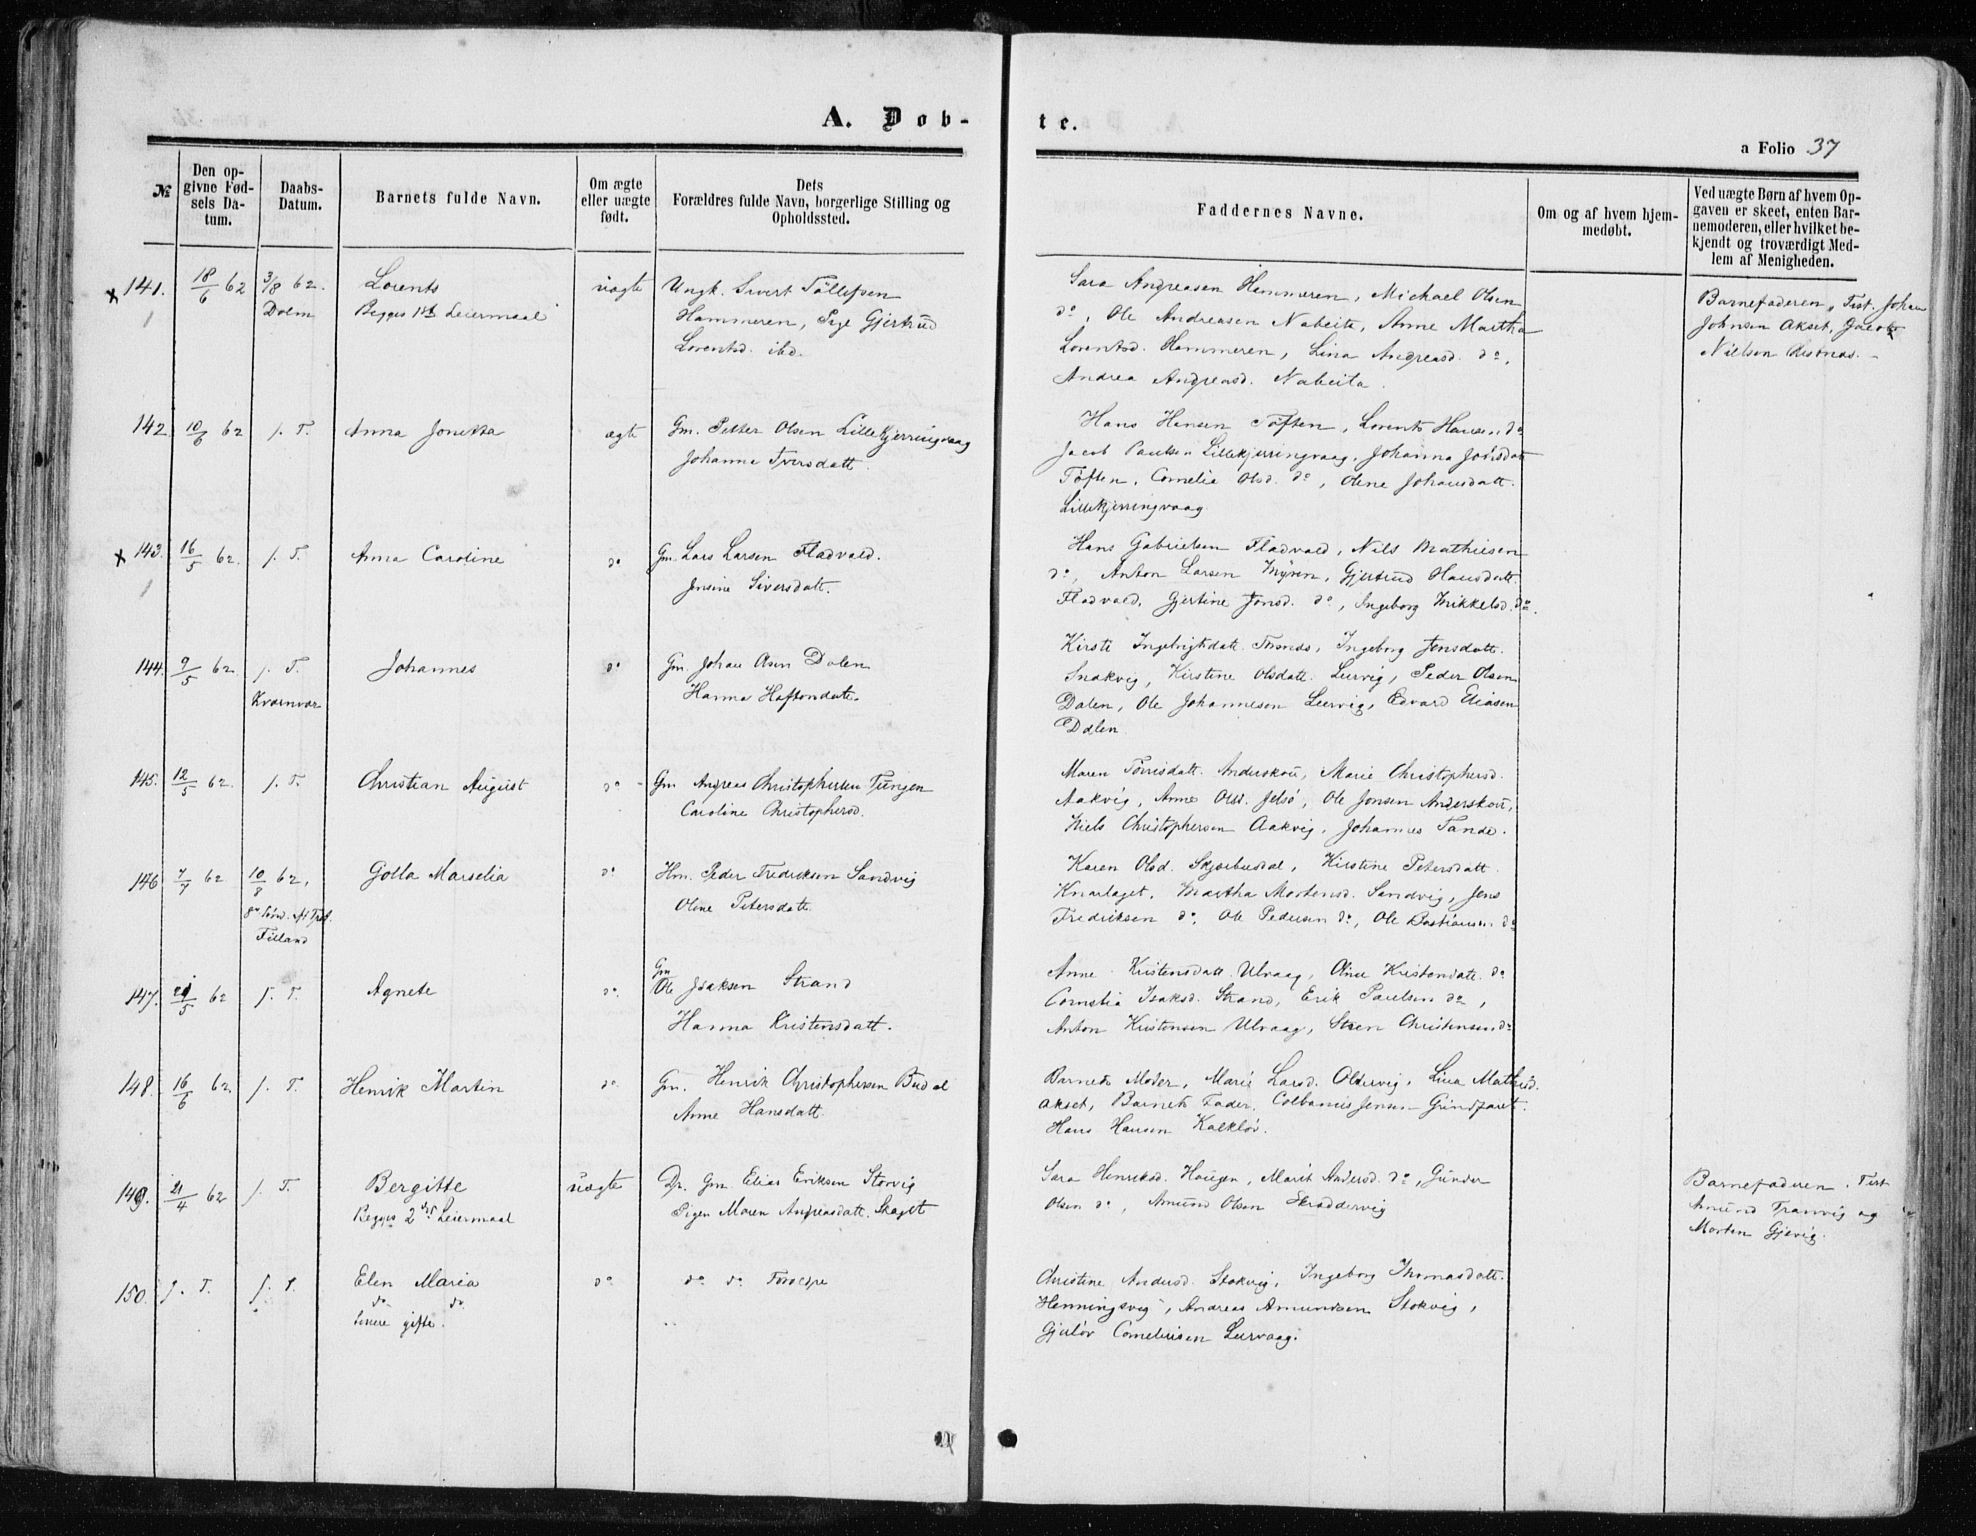 A. Døb-
te.
a Folio 37
№
Den op-
givne Fød-
sels Da-
tum.
Daabs-
Datum.
Barnets fulde Navn.
Om ægte
eller uægte
født.
Dets
Forældres fulde Navn, borgerlige Stilling og
Opholdssted.
Faddernes Navne.
Om og af hvem hjem-
medøbt.
Ved uægte Børn af hvem Op-
gaven er skeet, enten Bar-
nemoderen, eller hvilket be-
kjendt og troværdigt Med-
lem af Menigheden.
141. 18/6 62 3/8 62.
Dolm
Lorents
Begges 1ste Leiermaal
uægte
Ungk. Sivert Tøllefsen
Hammeren, Pige Gjertrud
Lorentsd. ibd.
Sara Andreasen Hammeren, Michael Olsen
do, Ole Andreasen Nabeita, Anne Martha
Lorentsd. Hammeren, Lina Andreasd. do,
Andrea Andreasd. Nabeita.
Barnefaderen, Test. Johan
Johnsen Akset, Jacob
Nielsen
142 10/6 62 f. T.
Anna Jonetta
ægte
Gm. Petter Olsen Lillekjerringvaag
Johanna Iversdatt.
Hans Hansen Tøften, Lorents Hansen do
Jacob Paulsen Lillekjerringvaag, Johanna
Tøften, Cornelia Olsd. do, Oline Johansdatt.
Lillekjerringvaag
143. 16/5 62. f. T.
Anna Caroline
do
Gm. Lars Larsen Fladvald.
Jensine Siversdatt.
Hans Gabrielsen Fladvald, Nils Mathiesen
do, Anton Larsen Myren, Gjertrud Hansdatt.
Fladvald, Gjertine Jonsd. do, Ingeborg Mikkelsd. do.
144. 9/5 62 f. T.
Kvernvær
Johannes
do
Gm. Johan Olsen Dalen
Hanna Haftorsdatt.
Kirste Ingebrigtsdatt. , Ingeborg Jonsdatt.
Snakvig, Kirstine Olsdatt. Leirvig, Peder Olsen
Dalen, Ole Johannesen Leervig, Edvard Eliasen
Dalen
145. 12/5 62. f. T.
Christian August
do
Gm Andreas Christophersen Tungen
Caroline Christophersd.
Maren Tørrisdatt. Anderskou, Marie Christophersd.
Aakvig, Anne Olsd. Jelsø, Ole Jonsen Anderskou,
Niels Christophersen Aakvig, Johannes Tande.
146 7/7 62 10/8 62,
8de Sønd. eft Tref.
Filland
Golla Marselia
do
Hm. Peder Fredriksen Sandvig
Oline Petersdatt.
Karen Olsd. , Kirstine Petersdatt.
Knarlaget, Martha Mortensd. Sandvig, Jens
Fredriksen do, Ole Pedersen do, Ole Bastiansen do
147. 21/5 62 f. T.
Agnete
do.
Gm
Ole Isaksen Strand
Hanna Kristensdatt.
Anne Kristensdatt Ulvaag, Oline Kristensdatt. do
Cornelia Isaksd. Strand, Erik Paulsen do,
Anton Kristensen Ulvaag, Steen Christensen do
148. 16/6 62 f. T.
Henrik Martin
do.
Gm. Henrik Christophersen Budal
Anne Hansdatt.
Barnets Moder, Marie Larsd. Oldervig, Lina Mathisd.
Akset, Barnets Fader, Colbanus Jensen Grindfaret.
Hans Hansen Kalkløv.
149. 21/4 62 f. T.
Bergitte
Begges 2det Leiermaal
uægte
Dp. Gm. Elias Eriksen Storvig
Pigen Maren Andreasdatt. Skaget
Sara Henriksd. Haugen, Marit Andersd. do, Gunder
Olsen do, Amund Olsen Skraddervig
Barnefaderen. Test
Amund Tranvig og
Morten Gjevig.
150. f. T. f. T.
Elen Maria
do do
senere gifte.
do
do do Forældre
Christine Andersd. Stokvig, Ingeborg Thomasdatt.
Henningsvig, Andreas Amundsen Stokvig,
Gjerløv Corneliusen Leervaag.